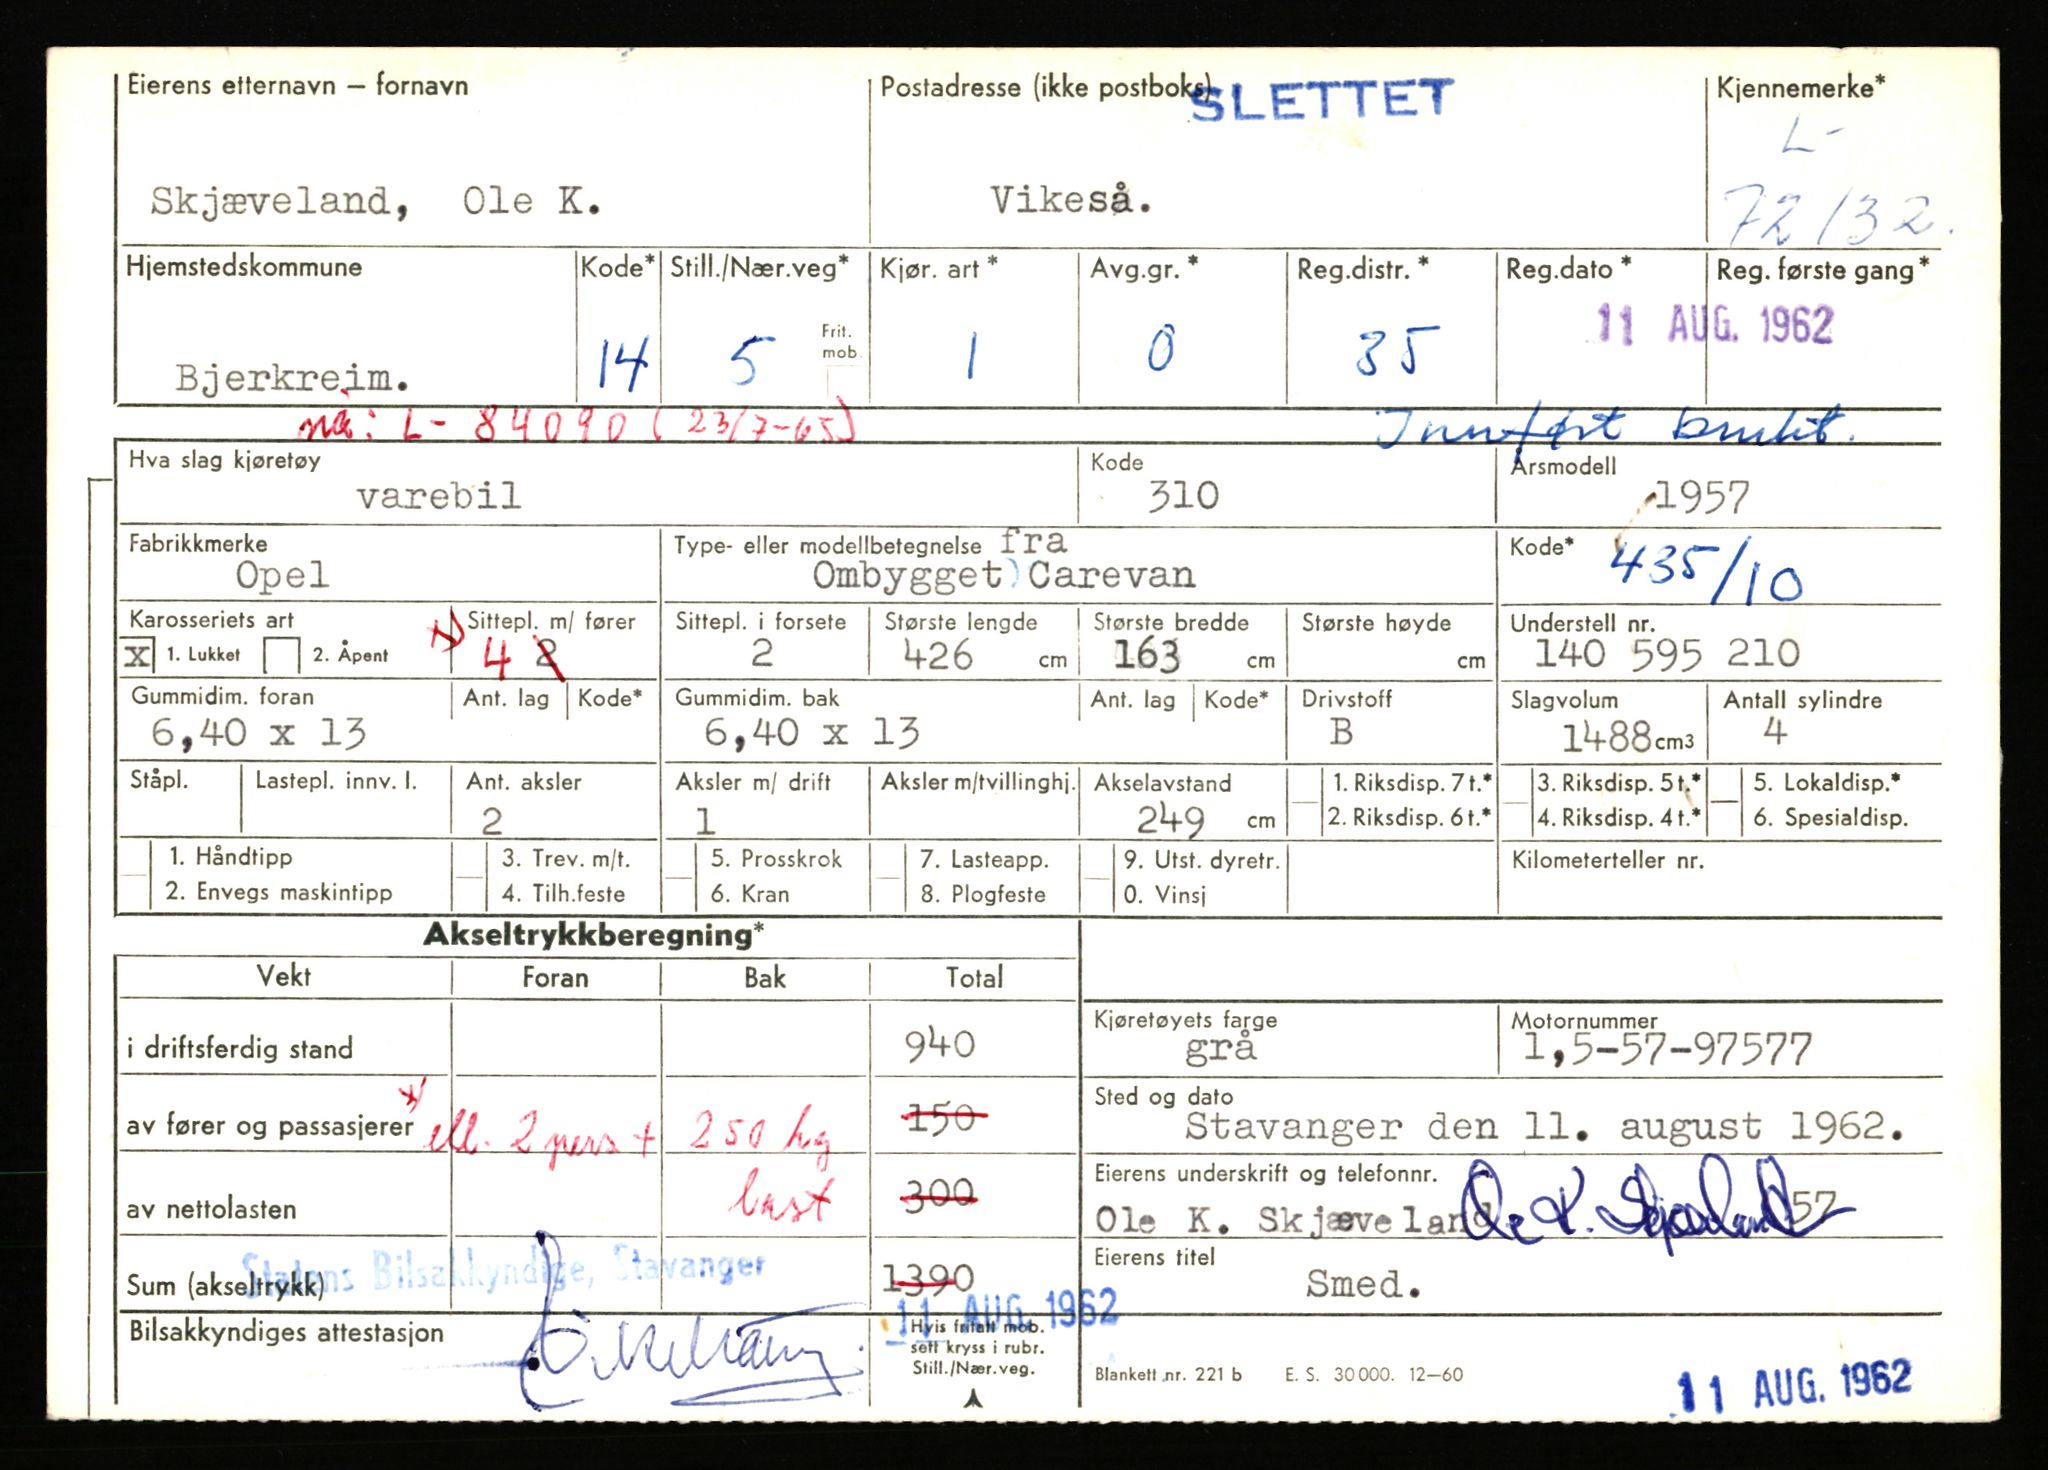 Eierens etternavn – fornavn
Postadresse (ikke postboks)
SLETTET
Kjennemerke*
L-
72132.
Skjæveland, Ole K.
Vikeså.
Hjemstedskommune
Kode*
Still./Nær.veg*
Kjør. art *
Avg.gr. *
Reg.distr. *
Reg.dato *
Reg. første gang*
Bjerkreim.
14
5
Frit. mob.
1
0
35
11 AUG. 1962
nå: L- 84090 (23/7-65)
Innført brukt.
Hva slag kjøretøy
Kode
Årsmodell
varebil
310
1957
Fabrikkmerke
Type- eller modellbetegnelse
fra
Kode*
435/10
Opel
Ombygget) Carevan
Karosseriets art
x) Sittepl. m/ fører
Sittepl. i forsete
Største lengde
Største bredde
Største høyde
Understell nr.
X 1. Lukket
2. Åpent
4 2
2
426 cm
163 cm
cm
140 595 210
Gummidim. foran
Ant. lag
Kode*
Gummidim. bak
Ant. lag
Kode*
Drivstoff
Slagvolum
Antall sylindre
6,40 x 13
6,40 x 13
B
1488 cm3
4
Ståpl.
Lastepl. innv. l.
Ant. aksler
Aksler m/ drift
Aksler m/tvillinghj.
Akselavstand
1. Riksdisp. 7 t.*
3. Riksdisp. 5 t.*
5. Lokaldisp.*
2
1
249 cm
2. Riksdisp. 6 t.*
4. Riksdisp. 4 t.*
6. Spesialdisp.
1. Håndtipp
3. Trev. m/t.
5. Prosskrok
7. Lasteapp.
9. Utst. dyretr.
Kilometerteller nr.
2. Envegs maskintipp
4. Tilh.feste
6. Kran
8. Plogfeste
0. Vinsj
Akseltrykkberegning*
Vekt
Foran
Bak
Total
i driftsferdig stand
940
Kjøretøyets farge
grå
Motornummer
1,5-57-97577
av fører og passasjerer x)
ell. 2 pers + 250 kg
150
Sted og dato
Stavanger den 11. august 1962.
av nettolasten
last
300
Eierens underskrift og telefonnr.
Ole K. Skjæveland
Ole K. Skjæveland
57
Statens Bilsakkyndige, Stavanger
Sum (akseltrykk)
1390
Eierens titel
Smed.
11 AUG. 1962
Bilsakkyndiges attestasjon
Hvis fritatt mob.
sett kryss i rubr.
Still./Nær.veg.
Blankett nr. 221 b
E. S. 30000. 12–60
11 AUG. 1962